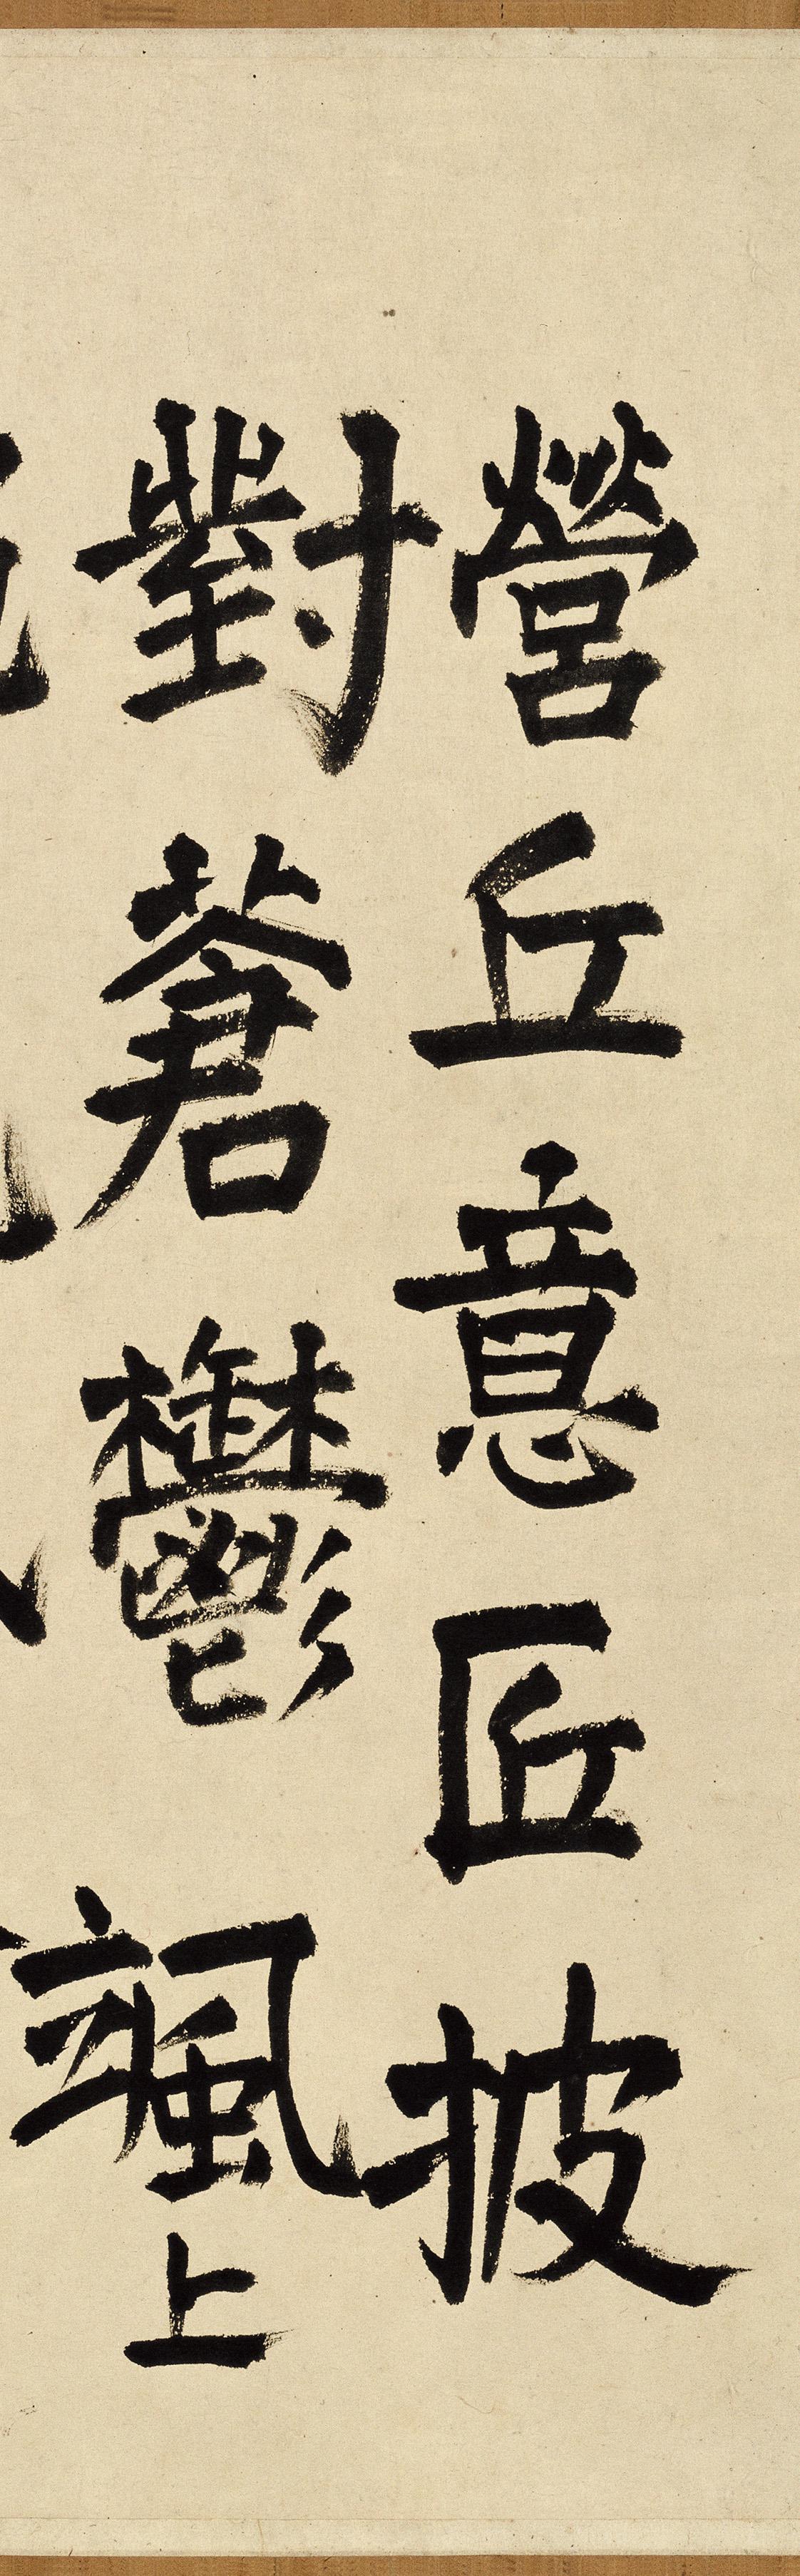 營丘意匠披
對蒼鬱颯上